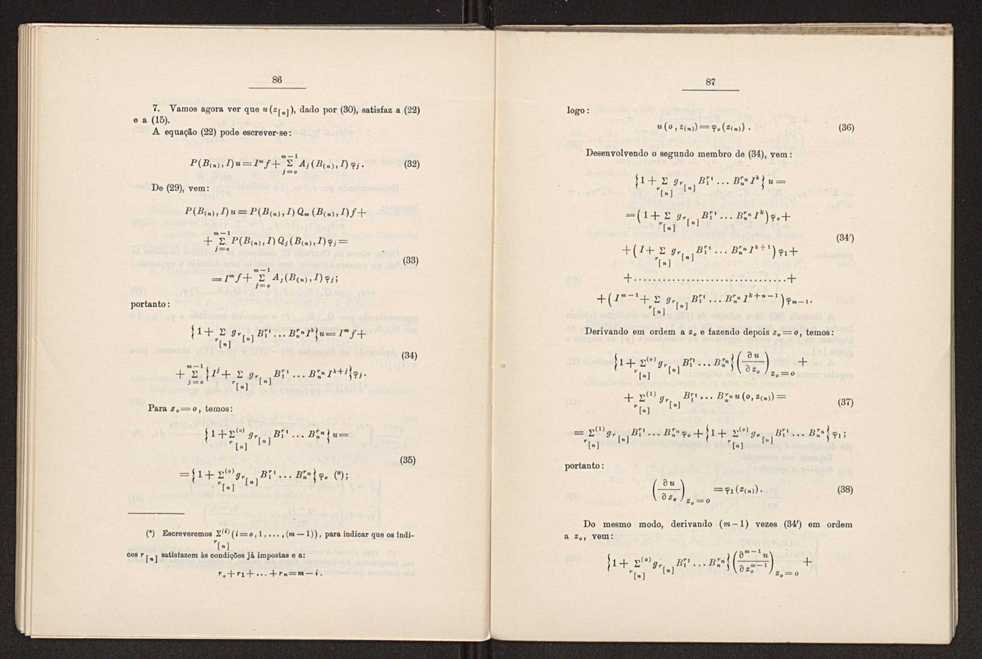 86
7. Vamos agora ver que u(z_[n]), dado por (30), satisfaz a (22)
e a (15).
A equação (22) pode escrever-se:
P(B_(n), I) u = I^m f + Σ_{j=o}^{m-1} A_j (B_(n), I) φ_j. (32)
De (29), vem:
P(B_(n), I) u = P(B_(n), I) Q_m (B_(n), I) f +
+ Σ_{j=o}^{m-1} P(B_(n), I) Q_j (B_(n), I) φ_j =
(33)
= I^m f + Σ_{j=o}^{m-1} A_j (B_(n), I) φ_j;
portanto:
{1 + Σ_{r_[n]} g_{r_[n]} B_1^{r_1} ... B_n^{r_n} I^k} u = I^m f +
(34)
+ Σ_{j=o}^{m-1} {I^j + Σ_{r_[n]} g_{r_[n]} B_1^{r_1} ... B_n^{r_n} I^{k+j}} φ_j.
Para z_o = o, temos:
{1 + Σ^{(o)}_{r_[n]} g_{r_[n]} B_1^{r_1} ... B_n^{r_n}} u =
(35)
= {1 + Σ^{(o)}_{r_[n]} g_{r_[n]} B_1^{r_1} ... B_n^{r_n}} φ_o (*);
(*) Escreveremos Σ^{(i)}_{r_[n]} (i = o, 1, ..., (m — 1)), para indicar que os índi-
ces r_[n] satisfazem às condições já impostas e a:
r_o + r_1 + ... + r_n = m — i.
87
logo:
u (o, z_(n)) = φ_o (z_(n)). (36)
Desenvolvendo o segundo membro de (34), vem:
{1 + Σ_{r_[n]} g_{r_[n]} B_1^{r_1} ... B_n^{r_n} I^k} u =
= (1 + Σ_{r_[n]} g_{r_[n]} B_1^{r_1} ... B_n^{r_n} I^k) φ_o +
(34')
+ (I + Σ_{r_[n]} g_{r_[n]} B_1^{r_1} ... B_n^{r_n} I^{k+1}) φ_1 +
+ .............................. +
+ (I^{m-1} + Σ_{r_[n]} g_{r_[n]} B_1^{r_1} ... B_n^{r_n} I^{k+n-1}) φ_{m-1}.
Derivando em ordem a z_o e fazendo depois z_o = o, temos:
{1 + Σ^{(o)}_{r_[n]} g_{r_[n]} B_1^{r_1} ... B_n^{r_n}} (∂u/∂z_o)_{z_o = o} +
+ Σ^{(1)}_{r_[n]} g_{r_[n]} B_1^{r_1} ... B_n^{r_n} u (o, z_(n)) =
(37)
= Σ^{(1)}_{r_[n]} g_{r_[n]} B_1^{r_1} ... B_n^{r_n} φ_o + {1 + Σ^{(o)}_{r_[n]} g_{r_[n]} B_1^{r_1} ... B_n^{r_n}} φ_1;
portanto:
(∂u/∂z_o)_{z_o = o} = φ_1 (z_(n)). (38)
Do mesmo modo, derivando (m — 1) vezes (34') em ordem
a z_o, vem:
{1 + Σ^{(o)}_{r_[n]} g_{r_[n]} B_1^{r_1} ... B_n^{r_n}} (∂^{m-1}u/∂z_o^{m-1})_{z_o = o} +